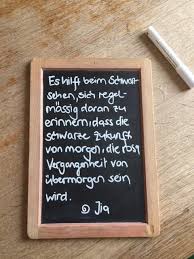 Es hilft beim Schwarz
sehen, sich regel-
mässig daran zu
erinnern, dass die
schwarze Zukunft
von morgen, die rosa
Vergangenheit von
übermorgen sein
wird.
© Jia